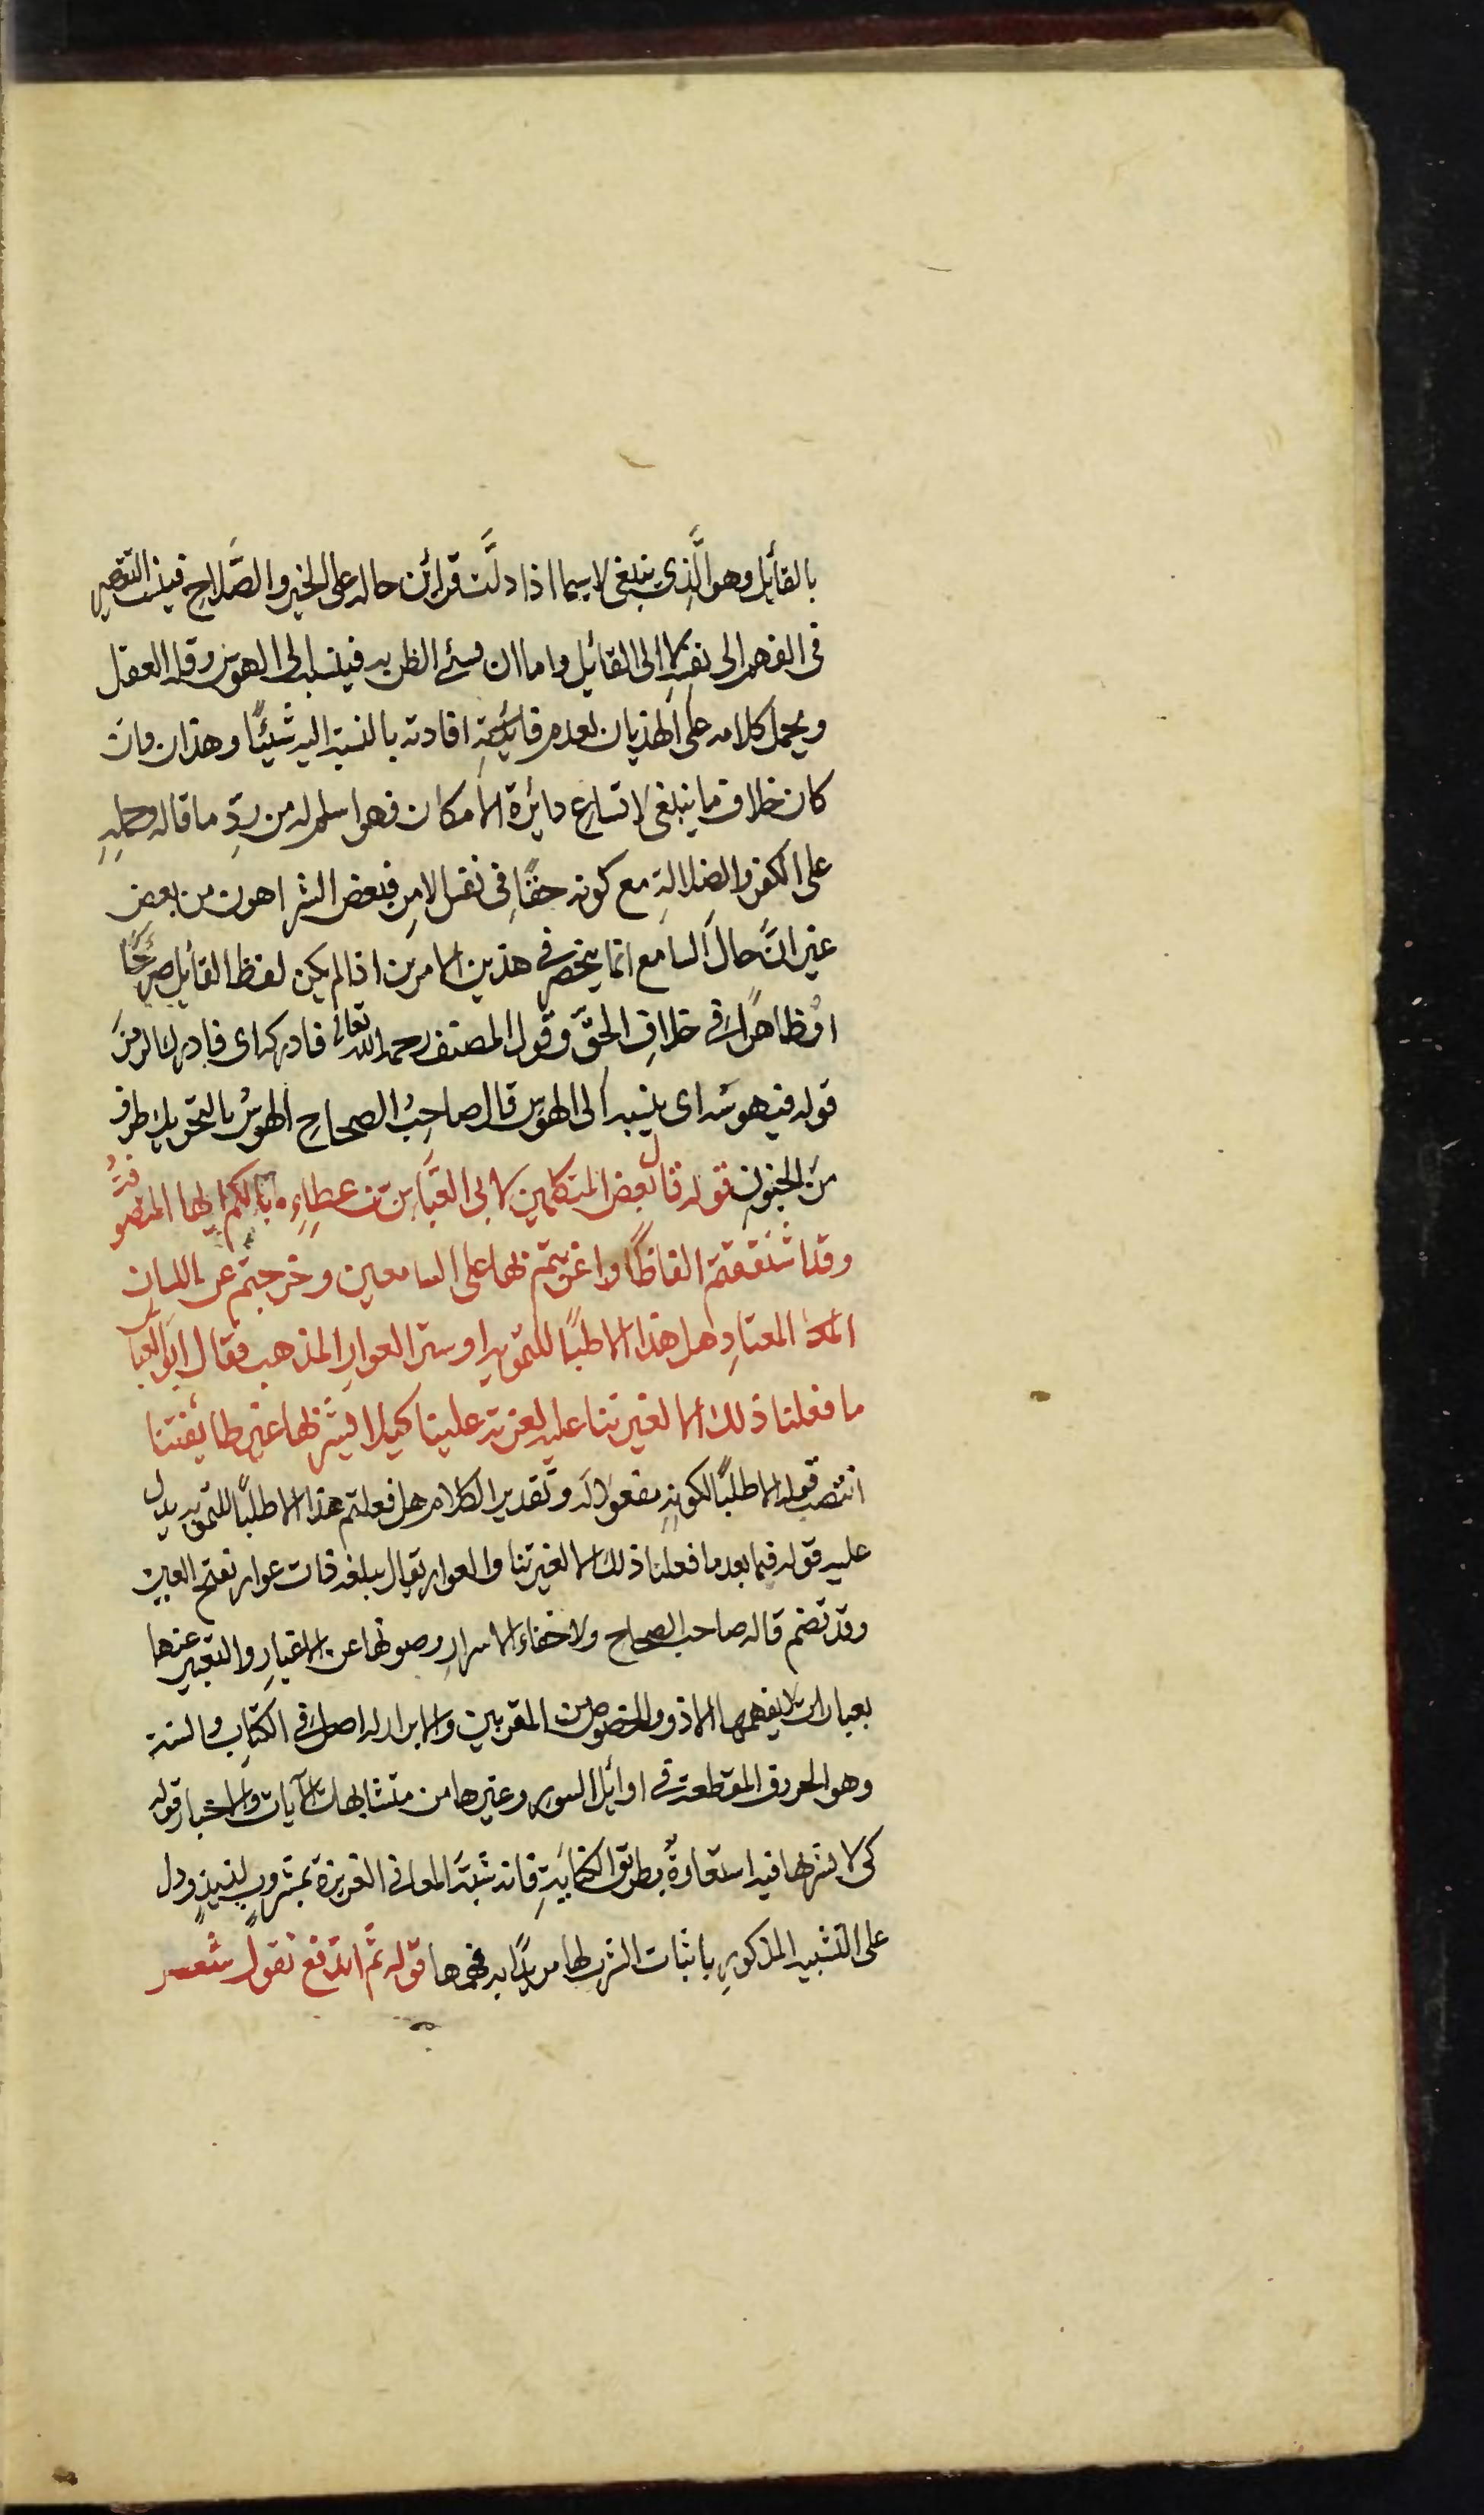 بالقائل وهو الَّذى ينبغى لاسيما اذا دلَّت قرائن حاله على الخير والصَّلاح فينسب التقصير
فى الفهم الى نفسه لا الى القائل واما ان يسئ الظن به فينسبه الى الهوس وقلة العقل
ويحمل كلامه على الهذيان لعدم فائدة افادته بالنسبة اليه شيئًا وهذا ان وان
كان خلاف ما ينبغى لاتساع دايرة الامكان فهو اسلم له من ردِّ ما قاله وحمله
على الكفر والضلالة مع كونه حقًّا فى نفس الامر فبعض الشر اهون من بعض
غير انَّ حال السامع انما ينحصر فى هذين الامرين اذا لم يكن لفظ القائل صريحًا
اوْ ظاهرًا فى خلاف الحقّ وقول المصنف رحمه الله تعالى فادركه اى فادرك الرمز
قوله فيهوسه اى ينسبه الى الهوس قال صاحب الصحاح الهوس بالتحريك طرف
من الجنون قوله قال بعض المتكلمين لابى العبَّاس بن عطاءٍ ما بالكم ايها المتصوفة
وقد اشتققتم الفاظًا واغربتم بها على السامعين وخرجتم عن اللسان
المعتاد هل هذا الا طلبًا للتمويه او ستر العوار المذهب فقال ابو العبا
ما فعلنا ذلك الا لغيرتنا عليه لعزته علينا كيلا يشربها غير طائفتنا
انتصب قوله الا طلبًا لكونه مفعولا له وتقدير الكلام هل فعلتم هذا الا طلبًا للتمويه يدل
عليه قوله فيما بعد ما فعلنا ذلك الا لغيرتنا والعوار يقال سلعة ذات عوار بفتح العين
وقد تضم قاله صاحب الصحاح ولاخفاء الاسرار وصونها عن الاغيار والتعبير عنها
بعبارات لا يفهمها الا ذوو الخصوص من المقربين والابرار له اصل فى الكتاب والسنة
وهو الحروف المقطعة فى اوائل السور وغيرها من متشابهات الآيات والاخبار قوله
كى لا يشربها فيه استعارةٌ بطريق الكناية فانه شبَّه المعانى العزيزة بمشروبٍ لذيذٍ ودل
على التشبيه المذكور باثبات الشرب لها مريدًا به فهمها قوله ثم اندفع يقول شعر